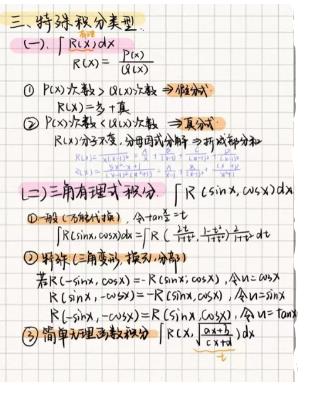 三、特殊积分类型
(一). ∫R(x)dx
有理
R(x) = P(x)/Q(x)
① P(x)次数 > Q(x)次数 ⇒ 假分式
R(x) = 多 + 真
② P(x)次数 < Q(x)次数 ⇒ 真分式
R(x)分子不变, 分母因式分解 ⇒ 拆成部分和
(二) 三角有理式积分. ∫R(sinx, cosx)dx
① 一般 (万能代换), 令tan x/2 = t
∫R(sinx, cosx)dx = ∫R(2t/1+t², 1-t²/1+t²) 2/1+t² dt
② 特殊 (三角变形, 换元, 分部)
若R(-sinx, cosx) = -R(sinx, cosx), 令u = cosx
R(sinx, -cosx) = -R(sinx, cosx), 令u = sinx
R(-sinx, -cosx) = R(sinx, cosx), 令u = tanx
③ 简单无理函数积分 ∫R(x, √ax+b/cx+d)dx
t